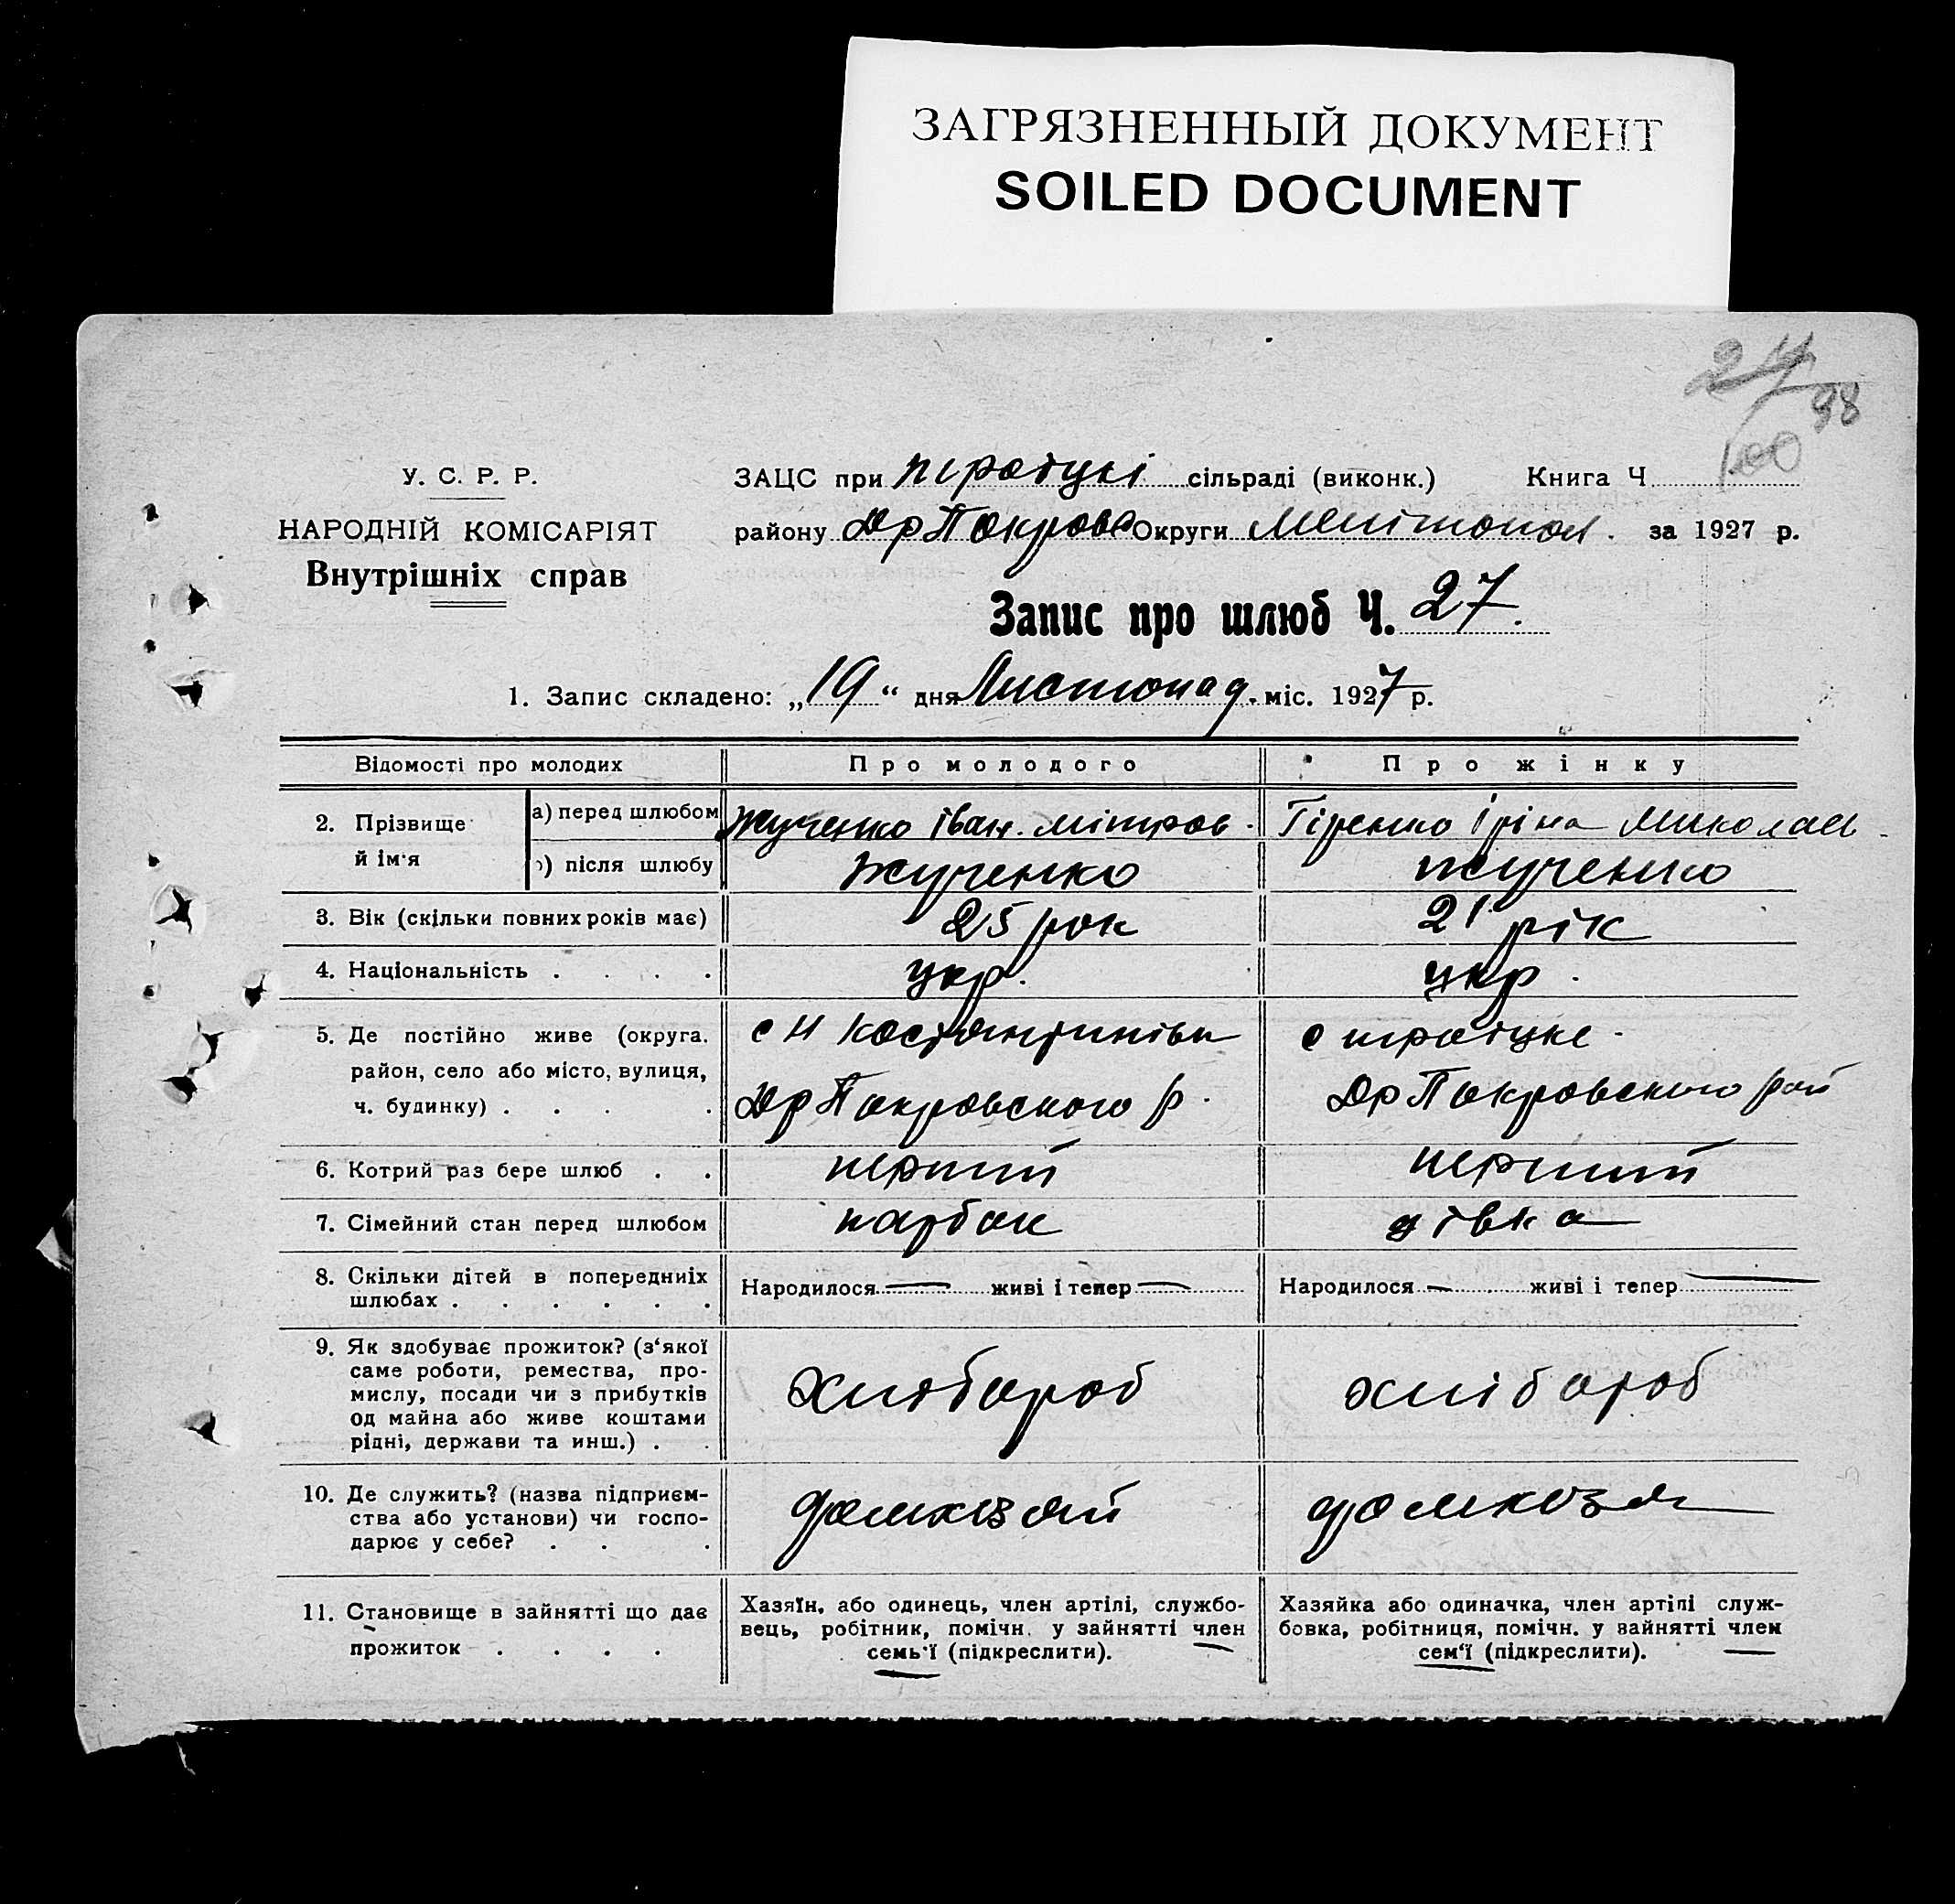 ЗАГРЯЗНЕННЫЙ ДОКУМЕНТ
SOILED DOCUMENT
24
98
100
У. С. Р. Р.
НАРОДНІЙ КОМІСАРІЯТ
Внутрішніх справ
ЗАЦС при сільраді (виконк.) Книга Ч
району Др Покров Округи Мелітопол. за 1927 р.
Запис про шлюб Ч. 27.
1. Запис складено: „19“ дня Листопад. міс. 1927 р.
Відомості про молодих Про молодого Про жінку
2. Прізвище й ім'я а) перед шлюбом Жученко Іван. Мітров. Гіренко Іріна Миколаєв.
) після шлюбу Жученко Жученко
3. Вік (скільки повних років має) 25 рок 21 рік
4. Національність . . . . укр. укр.
5. Де постійно живе (округа. с Н Костянтинівк с
район, село або місто, вулиця, Др Покровського р. Др Покровського рай
ч. будинку) . . . .
6. Котрий раз бере шлюб . . перший перший
7. Сімейний стан перед шлюбом парубок дівка
8. Скільки дітей в попередніх Народилося — живі і тепер — Народилося — живі і тепер —
шлюбах . . . . . .
9. Як здобуває прожиток? (з‘якої
саме роботи, ремества, про-
мислу, посади чи з прибутків хлібороб хлібороб
од майна або живе коштами
рідні, держави та инш.) . .
10. Де служить? (назва підприєм-
ства або установи) чи госпо-
дарює у себе? . . .
11. Становище в зайнятті що дає
прожиток . . . .
Хазяїн, або одинець, член артілі, службо-
вець, робітник, помічн. у зайнятті член
семь‘ї (підкреслити).
Хазяйка або одиначка, член артілі служ-
бовка, робітниця, помічн. у зайнятті член
сем‘ї (підкреслити).